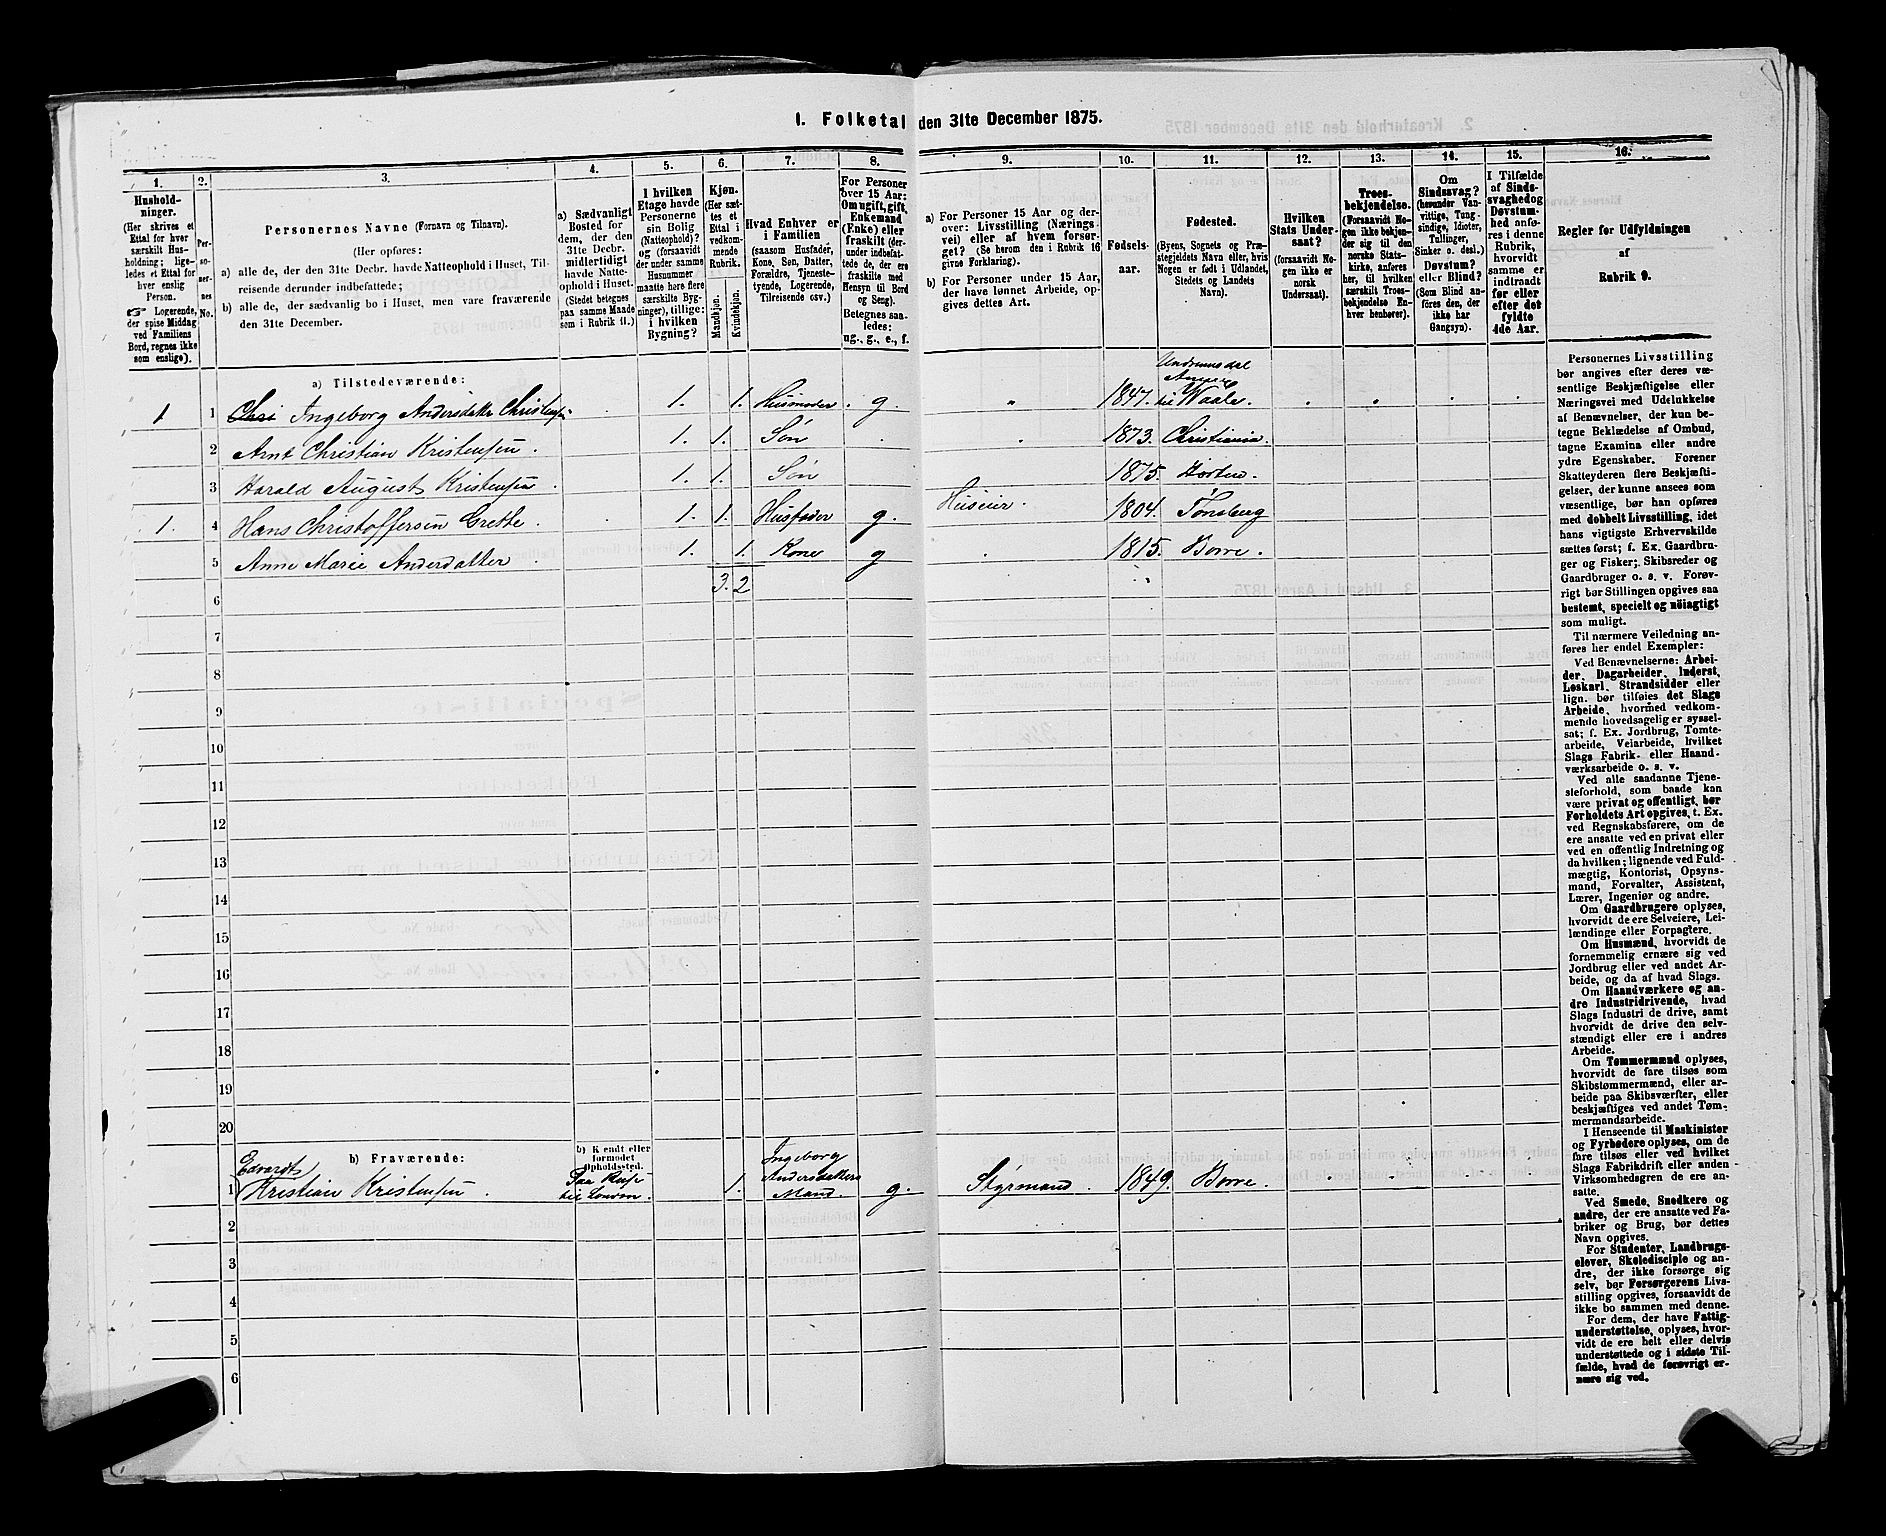 1. Folketal den 31te December 1875.
1.
Hushold-
ninger.
(Her skrives et
Ettal for hver
særskilt Hus-
holdning; lige-
ledes et Ettal for
hver enslig
Person.
☞ Logerende,
der spise Middag
ved Familiens
Bord, regnes ikke
som enslige).
2.
Per-
so-
ner-
nes
No.
3.
Personernes Navne (Fornavn og Tilnavn).
(Her opføres:
a) alle de, der den 31te Decbr. havde Natteophold i Huset, Til-
reisende derunder indbefattede;
b) alle de, der sædvanlig bo i Huset, men vare fraværende
den 31te December.
4.
a) Sædvanligt
Bosted for
dem, der den
31te Decbr.
midlertidigt
havde Natte-
ophold i Huset.
(Stedet betegnes
paa samme Maade
som i Rubrik 11.)
5.
I hvilken
Etage havde
Personerne
sin Bolig
(Natteophold)?
og (forsaavidt
der under samme
Husnummer
maatte høre flere
særskilte Byg-
ninger), tillige:
i hvilken
Bygning?
6.
Kjøn.
(Her sæt-
tes et
Ettal i
vedkom-
mende
Rubrik.
Mandkjøn.
Kvindekjøn.
7.
Hvad Enhver er
i Familien
(saasom Husfader,
Kone, Søn, Datter,
Forældre, Tjeneste-
tyende, Logerende,
Tilreisende osv.)
8.
For Personer
over 15 Aar:
Om ugift, gift,
Enkemand
(Enke) eller
fraskilt (der-
under indbefat-
tede de, der ere
fraskilte med
Hensyn til Bord
og Seng).
Betegnes saa-
ledes:
ug., g., e., f.
9.
a) For Personer 15 Aar og der-
over: Livsstilling (Nærings
vei) eller af hvem forsør-
get? (Se herom den i Rubrik 16
givne Forklaring).
b) For Personer under 15 Aar,
der have lønnet Arbeide, op-
gives dettes Art.
10.
Fødsels-
aar.
11.
Fødested.
(Byens, Sognets og Præ-
stegjeldets Navn eller, hvis
Nogen er født i Udlandet,
Stedets og Landets
Navn).
12.
Hvilken
Stats Under-
saat?
(forsaavidt No-
gen ikke er
norsk
Undersaat).
13.
Troes-
bekjendelse.
(Forsaavidt No-
gen ikke bekjen-
der sig til den
norske Stats-
kirke, anføres
her, til hvilken
særskilt Troes-
bekjendelse En-
hver henhører).
14.
Om
Sindssvag?
(herunder Van-
vittige, Tung-
sindige, Idioter,
Tullinger,
Sinker o. desl.)
Døvstum?
eller Blind?
(Som Blind an-
føres den, der
ikke har
Gangsyn).
15.
I Tilfælde
af Sinds-
svaghed og
Døvstum-
hed anfø-
res i denne
Rubrik,
hvorvidt
samme er
indtraadt
før eller
efter det
fyldte
4de Aar.
16.
Regler for Udfyldningen
af
Rubrik 9.
a) Tilstedeværende:
1 1 Ingeborg Andersdatter Christensen 1. 1. Husmoder. g. " 1847. Undrumsdal Annex til Waale.
2 Arnt Christian Kristensen. 1. 1. Søn 1873. Christiania.
3 Harald August Kristensen 1. 1. Søn 1875. Horten.
1. 4 Hans Christoffersen Grette. 1. 1. Husfader g. Huseier. 1804. Tønsberg
5 Anne Marie Andersdatter 1. 1. Kone g 1815. Borre.
6 3. 2
7
8
9
10
11
12
13
14
15
16
17
18
19
20
b) Fraværende:
b) Kjendt eller
formodet
Opholdssted.
Edvardt
1 Kristian Kristensen. Paa Reise til London. 1. Ingeborg Andersdatters Mand. g. Styrmand. 1849. Borre.
2
3
4
5
6
Personernes Livsstilling
bør angives efter deres væ-
sentlige Beskjæftigelse eller
Næringsvei med Udelukkelse
af Benævnelser, der kun be-
tegne Beklædelse af Ombud,
tagne Examina eller andre
ydre Egenskaber. Forener
Skatteyderen flere Beskjæfti-
gelser, der kunne ansees som
væsentlige, bør han opføres
med dobbelt Livsstilling, idet
hans vigtigste Erhvervskilde
sættes først; f. Ex. Gaardbru-
ger og Fisker; Skibsreder og
Gaardbruger o. s. v. Forøv-
rigt bør Stillingen opgives saa
bestemt, specielt og nöiagtigt
som muligt.
Til nærmere Veiledning an-
føres her endel Exempler:
Ved Benævnelserne: Arbei-
der, Dagarbeider, Inderst,
Løskarl, Strandsidder eller
lign. bør tilføies det Slags
Arbeide, hvormed vedkom-
mende hovedsagelig er syssel-
sat; f. Ex. Jordbrug, Tomte-
arbeide, Veiarbeide, hvilket
Slags Fabrik- eller Haand-
værksarbeide o. s. v.
Ved alle saadanne Tjene-
steforhold, som baade kan
være privat og offentligt, bør
Forholdets Art opgives, t. Ex.
ved Regnskabsførere, om de
ere ansatte ved en privat eller
ved en offentlig Indretning og
da hvilken; lignende ved Fuld-
mægtig, Kontorist, Opsyns-
mand, Forvalter, Assistent,
Lærer, Ingeniør og andre.
Om Gaardbrugere oplyses,
hvorvidt de ere Selveiere, Lei-
lændinge eller Forpagtere.
Om Husmænd, hvorvidt de
fornemmelig ernære sig ved
Jordbrug eller ved andet Ar-
beide, og da af hvad Slags.
Om Haandværkere og an-
dre Industridrivende, hvad
Slags Industri de drive, samt
hvorvidt de drive den selv-
stændigt eller ere i andres
Arbeide.
Om Tømmermænd oplyses,
hvorvidt de fare tilsøs som
Skibstømmermænd, eller ar-
beide paa Skibsværfter, eller
beskjæftiges ved andet Tøm-
mermandsarbeide.
I Henseende til Maskinister
og Fyrbødere oplyses, om de
fare tilsøs eller ved hvilket
Slags Fabrikdrift eller anden
Virksomhedsgren de ere an-
satte.
Ved Smede, Snedkere og
andre, der ere ansatte ved Fa-
briker og Brug, bør dettes
Navn opgives.
For Studenter, Landbrugs-
elever, Skoledisciple og an-
dre, der ikke forsørge sig
selv, bør Forsørgerens Livs-
stilling opgives, forsaavidt de
ikke bo sammen med denne.
For dem, der have Fattig-
understøttelse, oplyses, hvor-
vidt de ere helt eller delvis
understøttede og i sidste Til-
fælde, hvad de forøvrigt er-
nære sig ved.